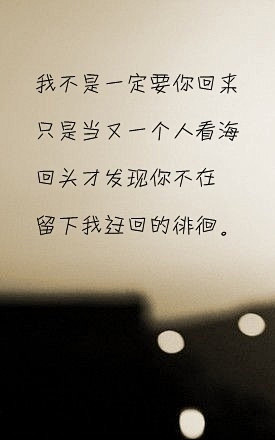 我不是一定要你回来
只是当又一个人看海
回头才发现你不在
留下我迂回的徘徊。